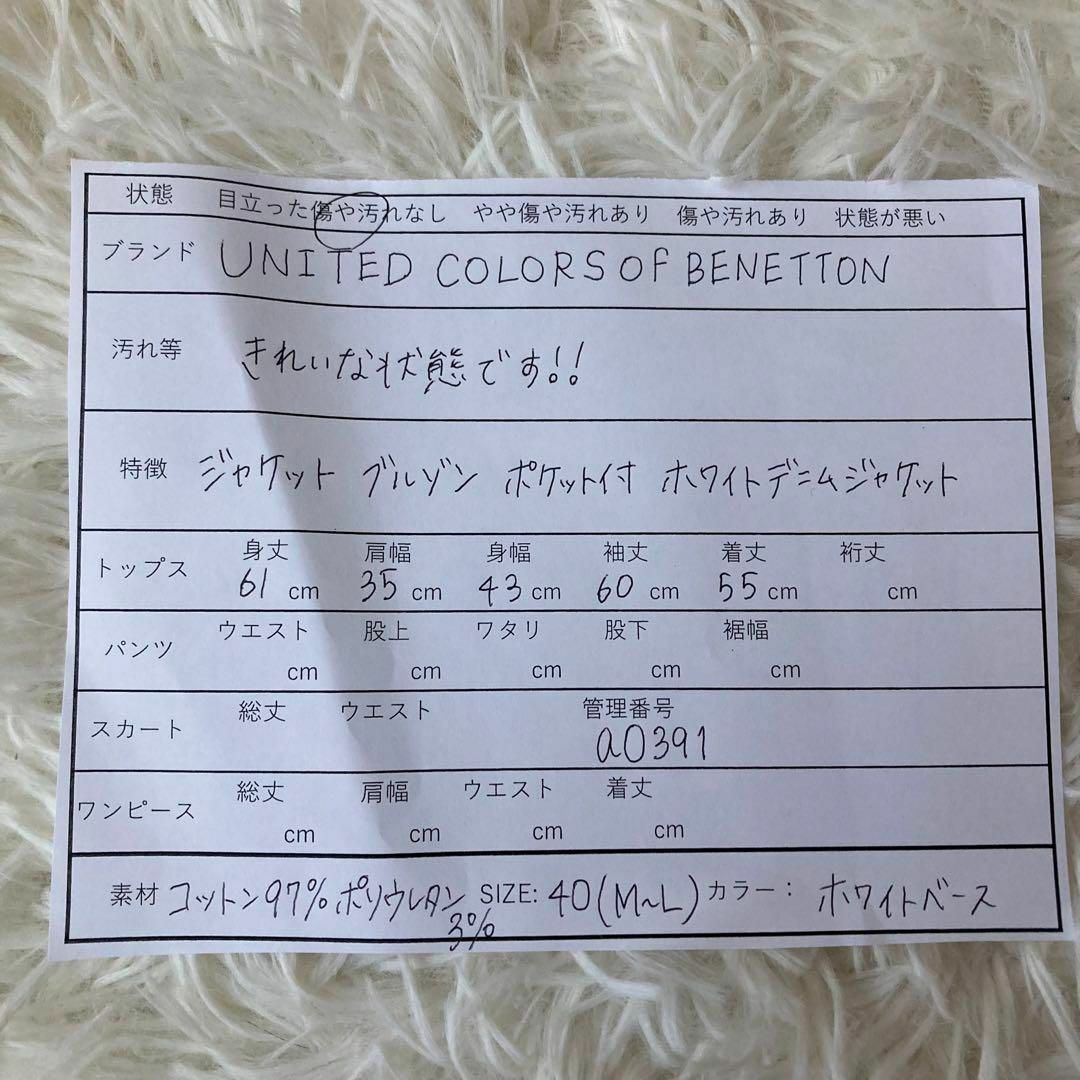 状態 目立った傷や汚れなし やや傷や汚れあり 傷や汚れあり 状態が悪い
ブランド UNITED COLORS OF BENETTON
汚れ等 きれいな状態です!!
特徴 ジャケット ブルゾン ポケット付 ホワイトデニムジャケット
トップス 身丈 肩幅 身幅 袖丈 着丈 裄丈
61 cm 35 cm 43 cm 60 cm 55 cm cm
パンツ ウエスト 股上 ワタリ 股下 裾幅
cm cm cm cm cm
スカート 総丈 ウエスト 管理番号
a0391
ワンピース 総丈 肩幅 ウエスト 着丈
cm cm cm cm
素材 コットン97% ポリウレタン 3% SIZE: 40(M~L) カラー: ホワイトベース